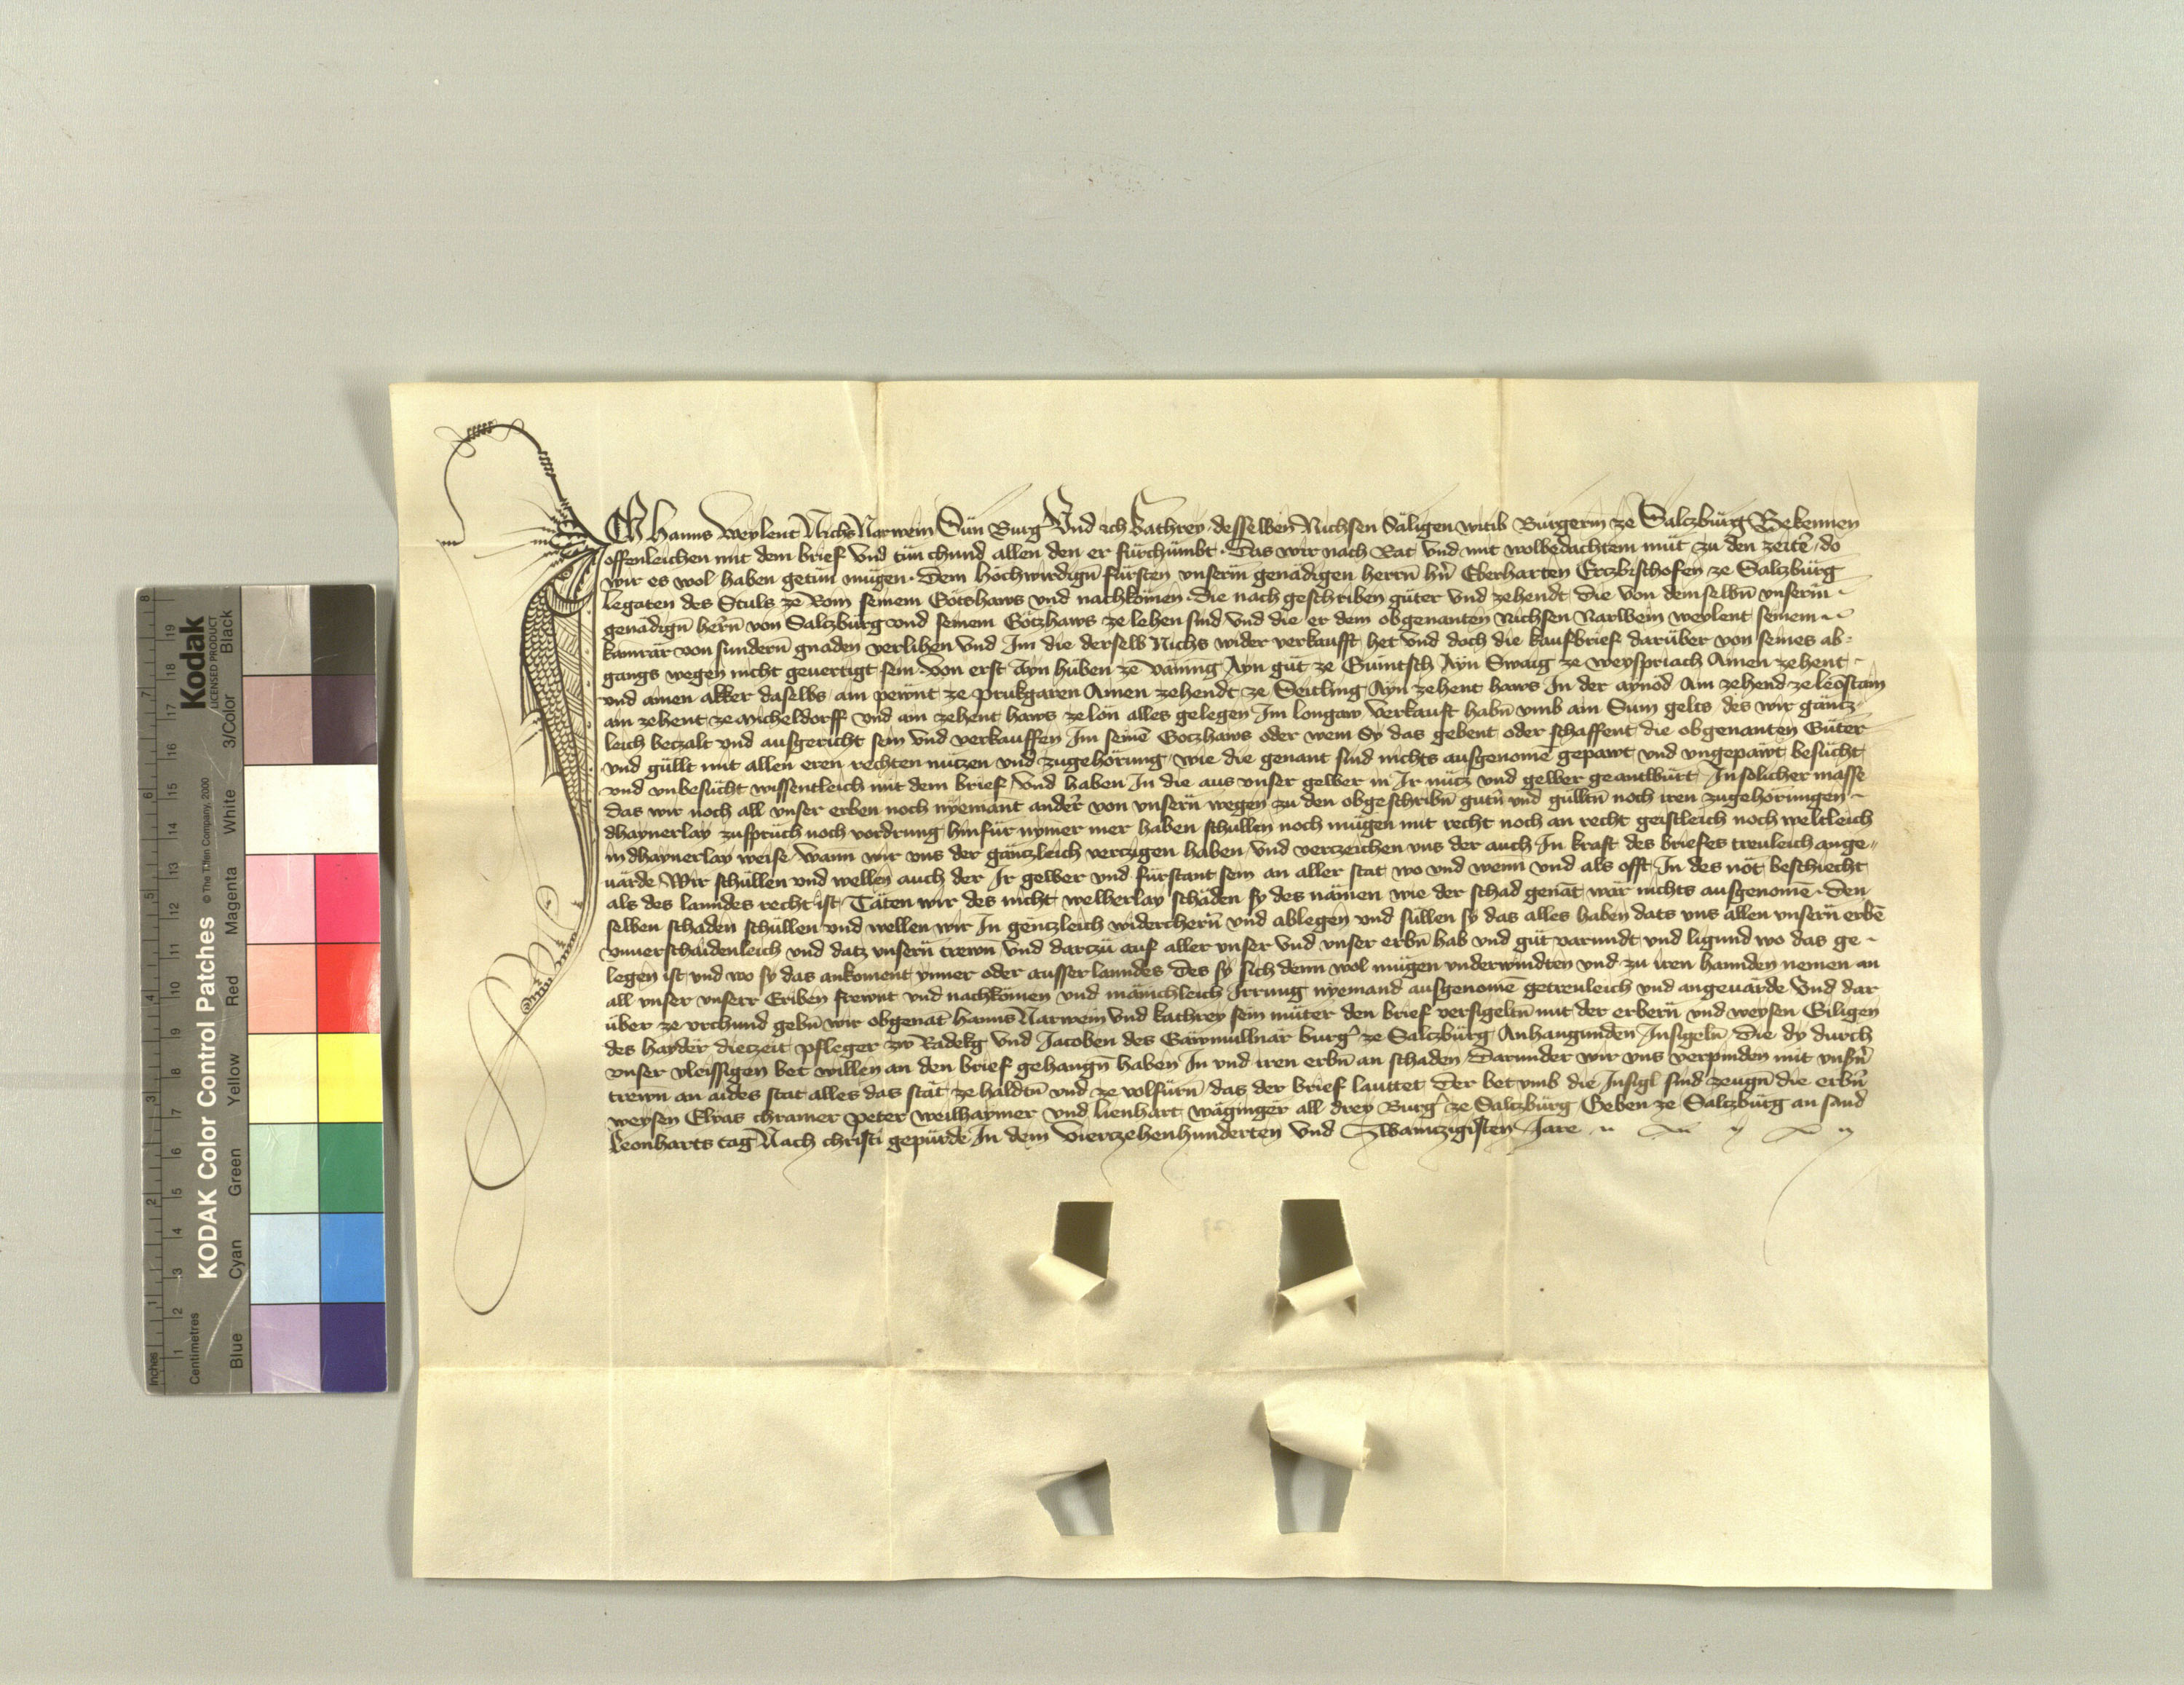 Ich Hanns weylent Nichs Narwein Sün Burg̾ Und ich Kathrey desselben Nichsen Säligen witib Burgerin ze Salczburg Bekennen
offenleichen mit dem brief Vnd tün chund allen den er fürchümbt Das wir nach Rat vnd mit wolbedachtem müt zu den zeitē do
wir es wol haben getün mügen Dem Höchwirdign̄ fürsten vnserm̄ genädigen herrn̄ hn̄ Eberharten Erczbischofen ze Salczbürg
Legaten des Stuls ze Rom seinem Gotshaws vnd nachkömen die nach geschriben güter vnd zehendt die von demselbn̄ vnserm
genädign̄ hern̄ von Salczbürg vnd seinem Götzhaws ze lehen sind vnd die er dem obgenanten Nichsen Narwein weylent seinem
kamrär von sundern̄ gnaden verlihen vnd Im die derselb Nichs wider verkaufft het vnd doch die kaufbrief darüber von seines ab
gangs wegen nicht geuertigt sein Von erst Ayn hüben ze Väning Ayn güt ze Guintsch Ayn Swaig ze weyspriach Ainen zehent
vnd ainen akker daselbs ain pewnt ze prukgaren Ainen zehendt ze Seitling Ayn zehent haws In der aynöd Ain zehend ze leöstain
ain zehent ze Micheldorff vnd ain zehent haws ze lön alles gelegen Im longaw verkauft habn̄ vmb ain Sum gelts des wir gäntz
leich betzalt vnd ausgericht sein vnd verkauffen Im seinē Gotzhaws oder wem Sy das gebent oder schaffent die obgenanten Güter
vnd güllt mit allen eren rechten nützen vnd zugehörung wie die genant sind nichts ausgenomē gepawt vnd vngepawt besücht
vnd vnbesücht wissentleich mit dem brief Vnd haben In die aus vnser gewer in Ir nütz vnd gewer geantwürt In solicher masse
das wir noch all vnser erben noch nyemant ander̄ von vnsern̄ wegen zu den obgeschribn̄ gutn̄ vnd gülltn̄ noch iren zugehörungen
dhaynerlay zuspruch noch vordrung hinfür nymer mer haben schullen noch mügen mit recht noch an recht geistleich noch weltleich
in dhaynerlay weise wann̄ wir vns der gäntzleich verczigen haben vnd verczeichen vns der auch In kraft des briefes treuleich ange
uärde Wir schüllen vnd wellen auch der Ir gewer vnd fürstant sein an aller stat wo vnd wenn̄ vnd als offt In des nöt beschiecht
als des lanndes recht ist Täten wir des nicht welherlay schäden sy des nämen wie der schad genāt wär nichts ausgenomē Den
selben schaden schüllen vnd wellen wir In gentzleich widerchern̄ vnd ablegen vnd süllen sy das alles haben dats vns allen vnsern̄ erbē
vnuerschaidenleich vnd datz vnsern̄ trewn vnd darczü auf aller vnser vnd vnser erbn̄ hab vnd güt varundt vnd ligund wo das ge
legen ist vnd wo sy das ankoment ynner oder ausser lanndes Des sy sich denn̄ wol mügen vnderwindten vnd zu iren hannden nemen an
all vnser vnserr Eriben frewnt vnd nachkömen vnd mänichleich Irrung nyemand ausgenomē getreuleich vnd angeuärde Vnd dar
über ze vrchund gebn̄ wir obgenāt Hanns Narwein vnd kathrey sein müter den brief versigeltn̄ mit der erbern̄ vnd weysen Giligen
des hayder dieczeit pfleger zw Radekg vnd Jacoben des Gäwmüllnär burg̾ ze Salczbürg Anhangunden Insigeln̄ Die dy durch
vnser vleissigen bet willen an den brief gehangn̄ haben In vnd iren erbn̄ an schaden Darunder wir vns verpinden mit vnsn̄
trewn̄ an aides stat alles das stät ze haldtn̄ vnd ze volfürn̄ das der brief lauttet Der bet vmb die Insigl sind zeugn̄ die erbn̄
weysen Elyas chramer Peter weilhaymer vnd lienhart wäginger all drey Burg̾ ze Salczbürg Geben ze Salczburg an sand
Leonharts tag Nach christi gepürde In dem Vierzehenhunderten vnd Zwainczigisten Jare
Kodak
LICENSED PRODUCT
KODAK Color Control Patches
© The Tiffen Company, 2000
Black
3/Color
White
Magenta
Red
Yellow
Green
Cyan
Blue
Inches
1
2
3
4
5
6
7
8
Centimetres
1
2
3
4
5
6
7
8
9
10
11
12
13
14
15
16
17
18
19